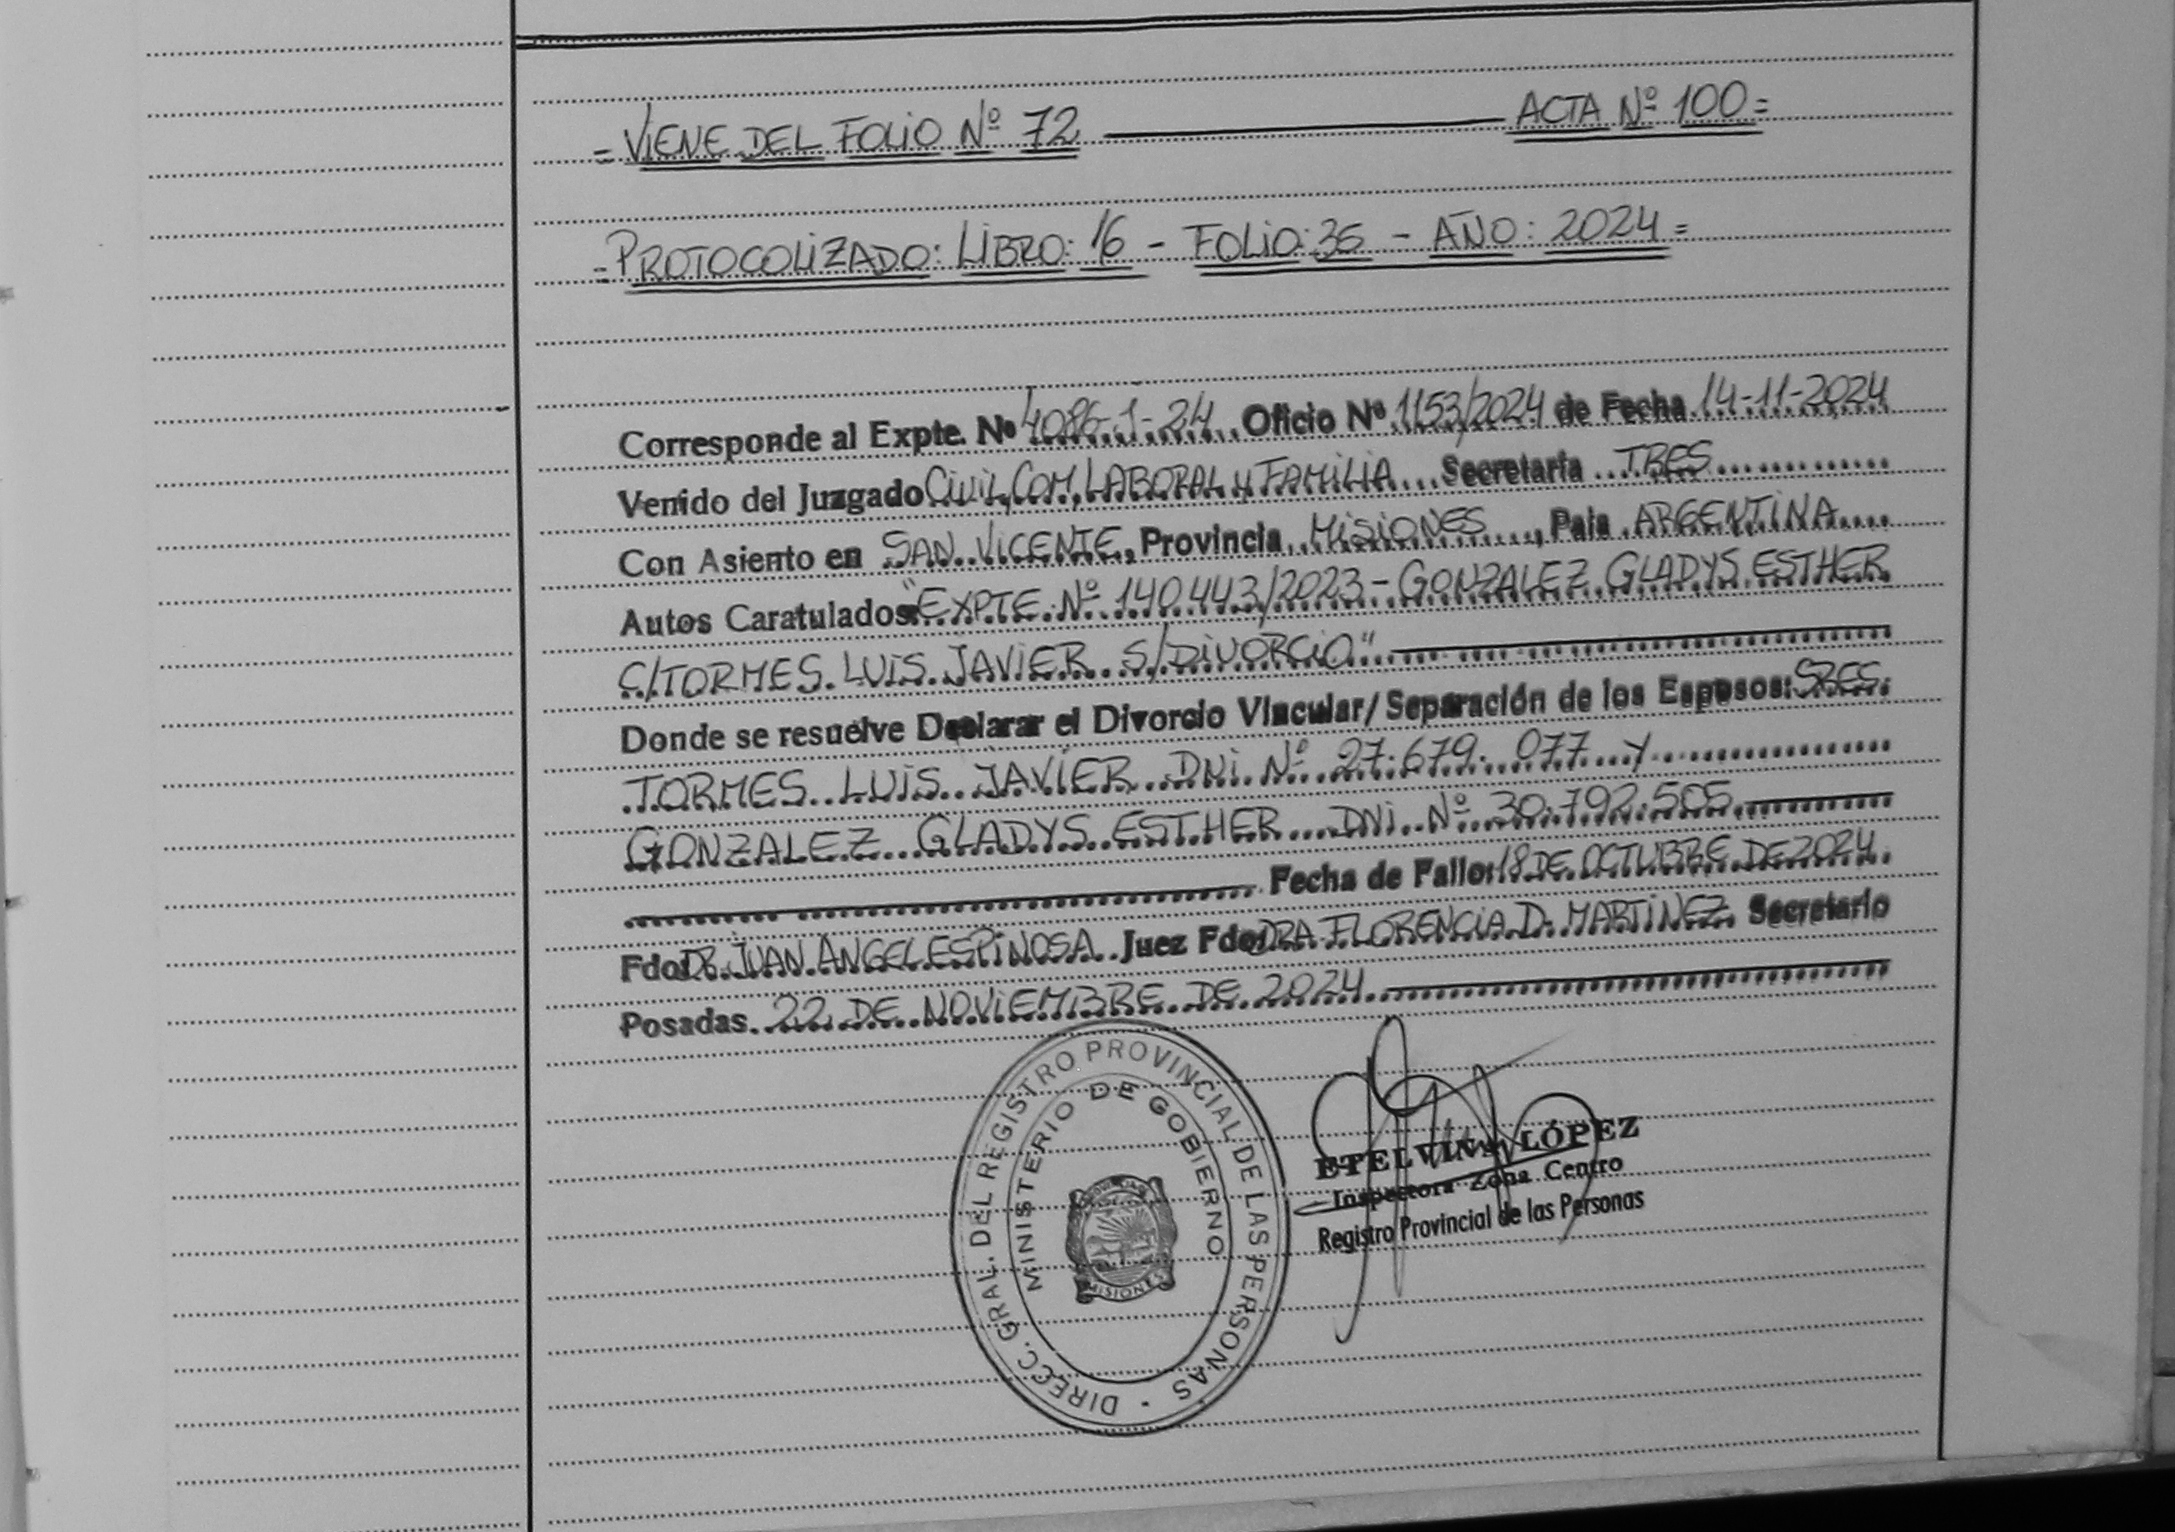 = VIENE DEL FOLIO Nº 72 ACTA Nº 100 =
= PROTOCOLIZADO: LIBRO: 16 - FOLIO: 36 - AÑO: 2024 =
Corresponde al Expte. Nº 4086-1-24 Oficio Nº 1153/2024 de Fecha 14-11-2024
Venido del Juzgado CIVIL, COM, LABORAL y FAMILIA Secretaria TRES
Con Asiento en SAN VICENTE, Provincia MISIONES, Pais ARGENTINA
Autos Caratulados "EXPTE. Nº 140.443/2023 - GONZALEZ GLADYS ESTHER
C/TORMES LUIS JAVIER S/DIVORCIO"
Donde se resuelve Declarar el Divorcio Vincular/Separación de los Esposos: SRES.
TORMES LUIS JAVIER DNI Nº 27.679.077 y
GONZALEZ GLADYS ESTHER DNI Nº 30.792.505
Fecha de Fallo: 18 DE OCTUBRE DE 2024
Fdo: DR. JUAN ANGEL ESPINOSA Juez Fdo: DRA FLORENCIA D. MARTINEZ Secretario
Posadas 22 DE NOVIEMBRE DE 2024
DIRECC. GRAL. DEL REGISTRO PROVINCIAL DE LAS PERSONAS
MINISTERIO DE GOBIERNO
MISIONES
ETELVINA LÓPEZ
Inspectora Zona Centro
Registro Provincial de las Personas